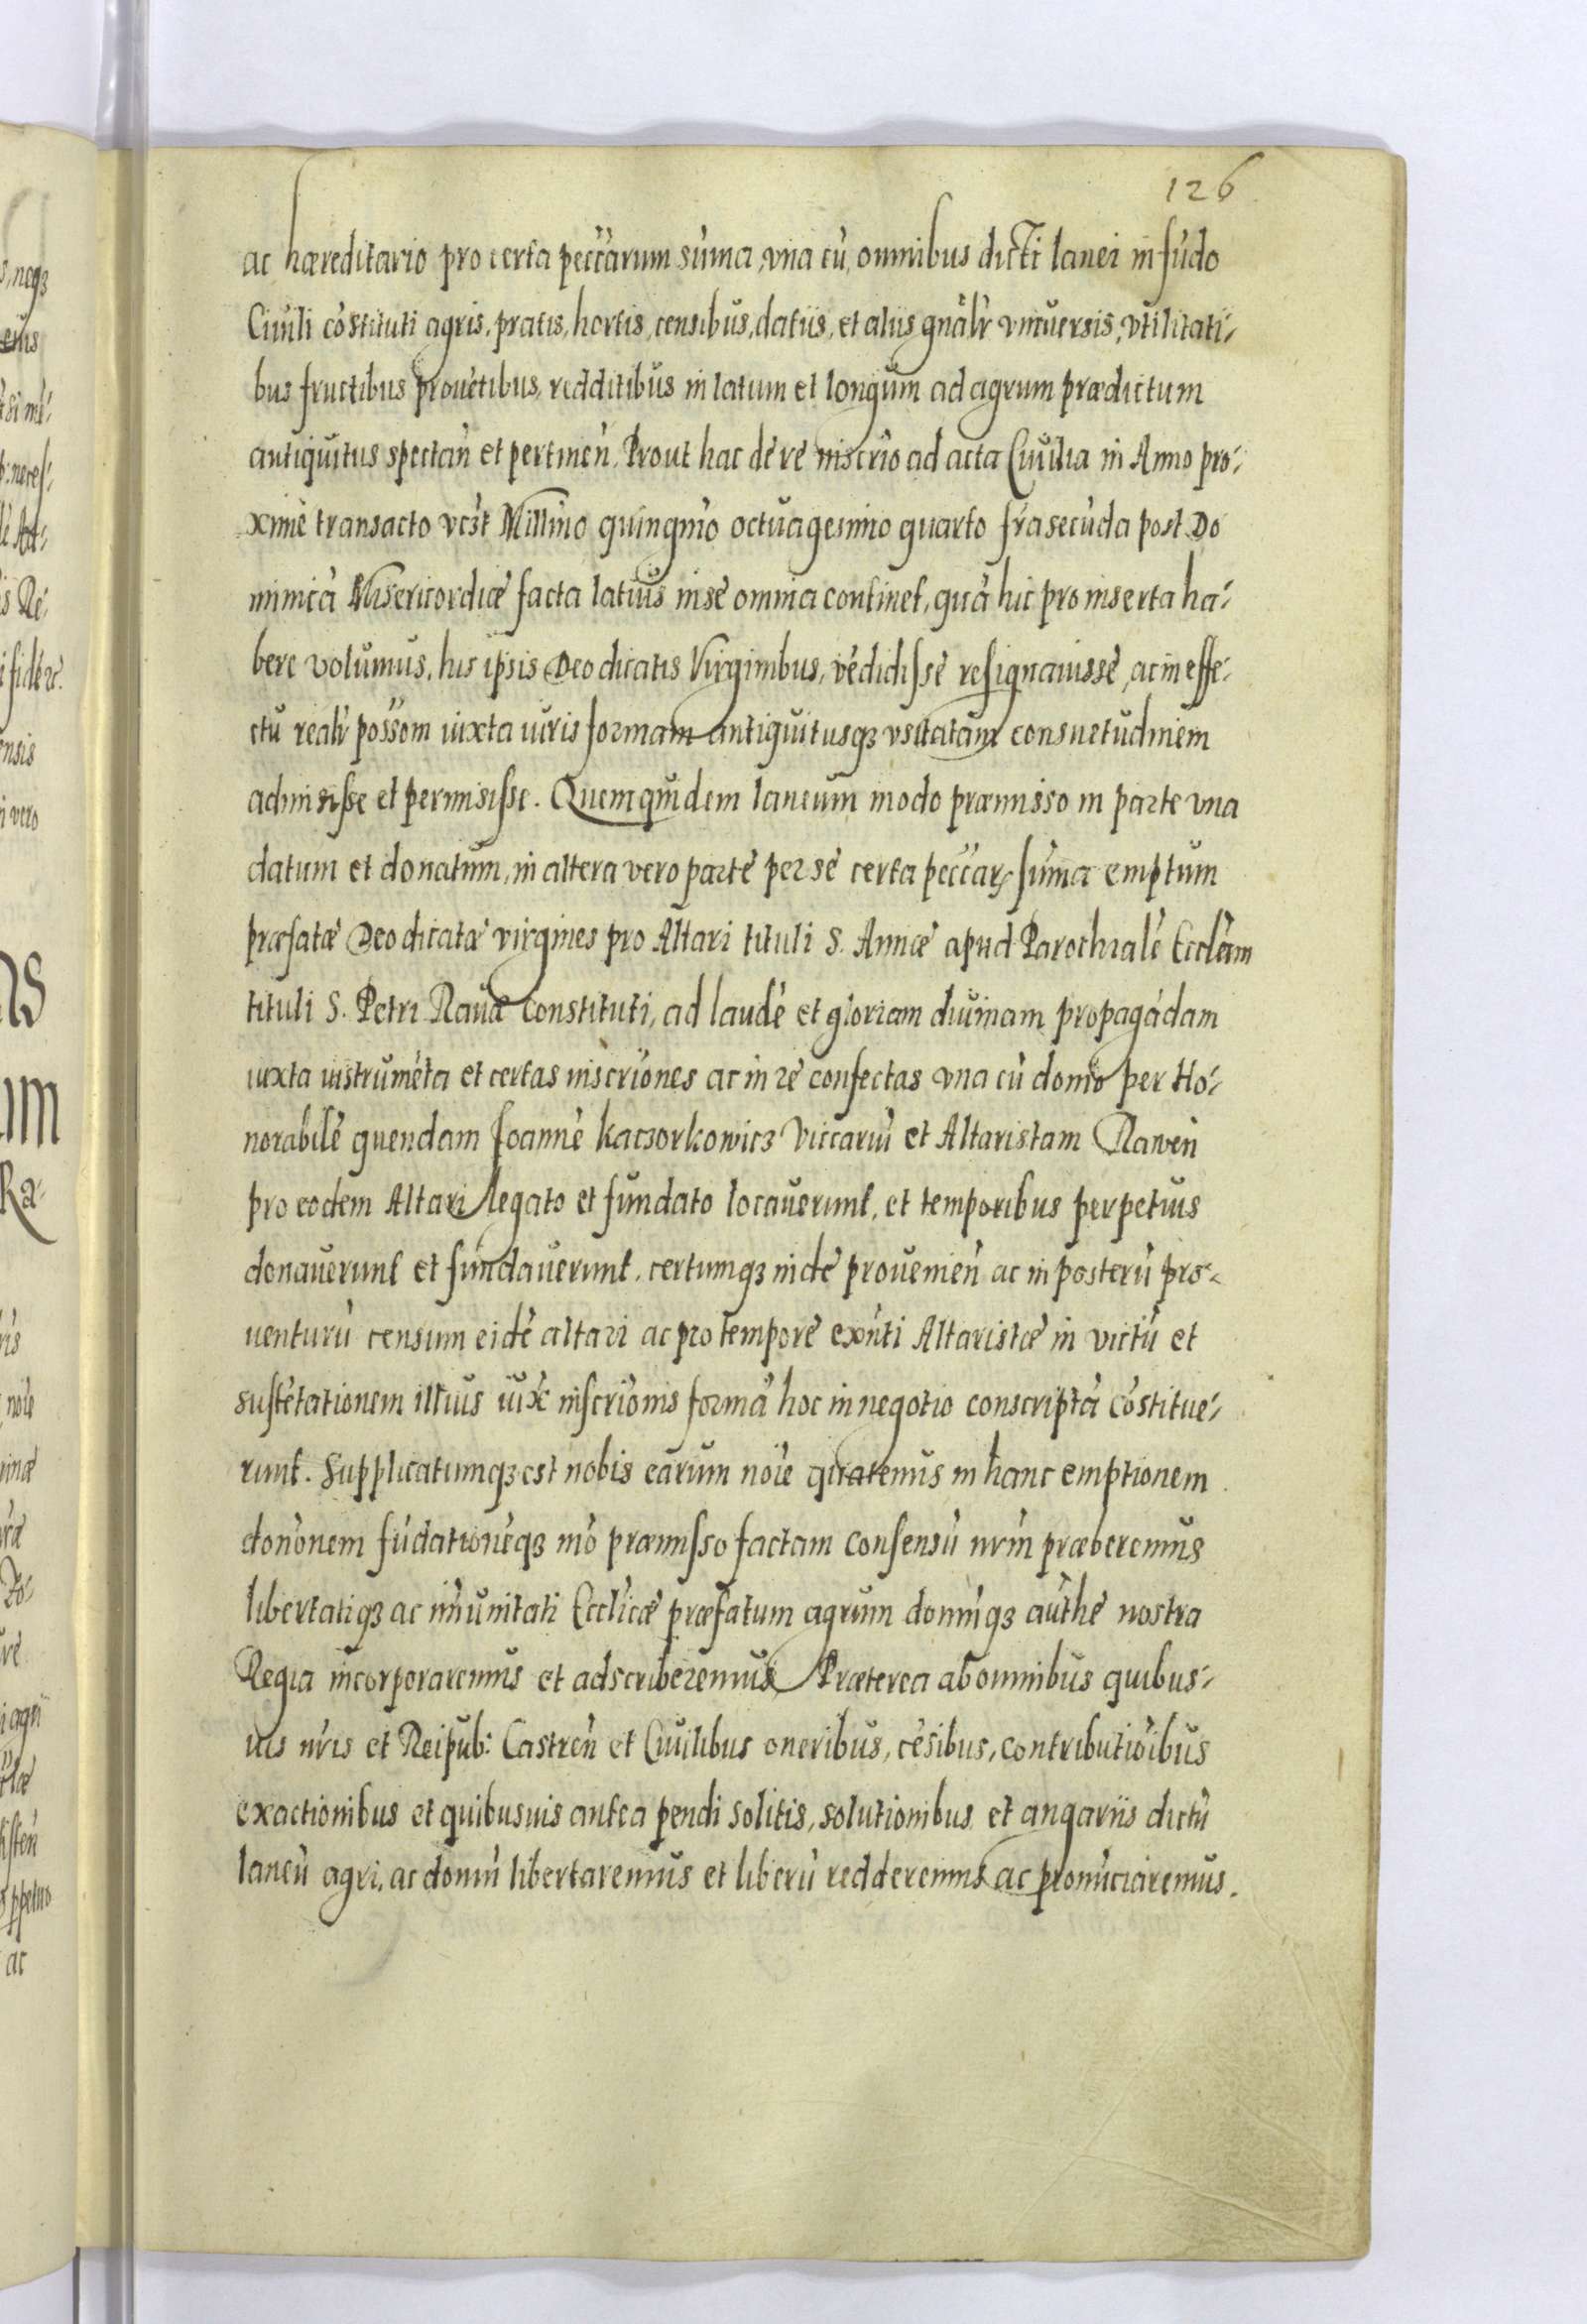 126
ac hæreditario pro certa peccarum sum̃a, vna cũ, omnibus dicti lanei in fũdo
Ciuili cõstituti agris, pratis, hortis, censibus, datiis, et aliis gnãlr vniuersis, vtilitati-
bus fructibus prouẽtibus, redditibus in latum et longum ad agrum prædictum
antiquitus spectañ et pertineñ. Prout hac de re inscrĩo ad acta Ciuilia in Anno pro-
ximè transacto vcšt Millm̃o quingm̃o octuagesimo quarto fr̃a secũda post Do
minicã Misericordiæ facta latius in se omnia continet, quã hic pro inserta ha-
bere volumus, his ipsis Deo dicatis Virginibus, vẽdidisse resignauisse, ac in effe-
ctu realr̃ possom̃ iuxta iuris formam antiquitusq; vsitatam consuetudinem
admisisse et permisisse. Quemquidem laneum modo præmisso in parte vna
datum et donatum, in altera vero parte per se certa peccar, sum̃a emptum
præfatæ Deo dicatæ virgines pro Altari tituli S. Annæ apud Parochialẽ Ecclẽam
tituli S. Petri Rauæ constituti, ad laudẽ et gloriam diuinam propagãdam
iuxta instrumẽta et certas inscrĩones ac in re confectas vna cũ domo per Ho-
norabilẽ quendam Joannẽ Kaczorkowicz Viccariũ et Altaristam Raweñ
pro eodem Altari legato et fundato locauerunt, et temporibus perpetuis
donauerunt et fundauerunt, certumq; inde proueniẽn ac in posterũ pro-
uenturũ censum eidẽ altari ac pro tempore exñti Altaristæ in victũ et
sustẽtationem illius iux̃ inscrĩonis formã hoc in negotio conscriptã cõstitue-
runt. Supplicatumq; est nobis earum noĩe quatenus in hanc emptionem
donõnem fũdationẽq; mõ præmisso factam consensũ nrm̃ præberemus
libertatiq; ac im̃unitati Ecclĩcæ præfatum agrum domũq; auth̃e nostra
Regia incorporaremus et adscriberemus, Præterea ab omnibus quibus-
uis nr̃is et Reipub: Castreñ et Ciuilibus oneribus, cẽsibus, contributiõibus
exactionibus et quibusuis antea pendi solitis, solutionibus et angariis dictũ
laneũ agri, ac domũ libertaremus et liberũ redderemus ac pronũciaremus.